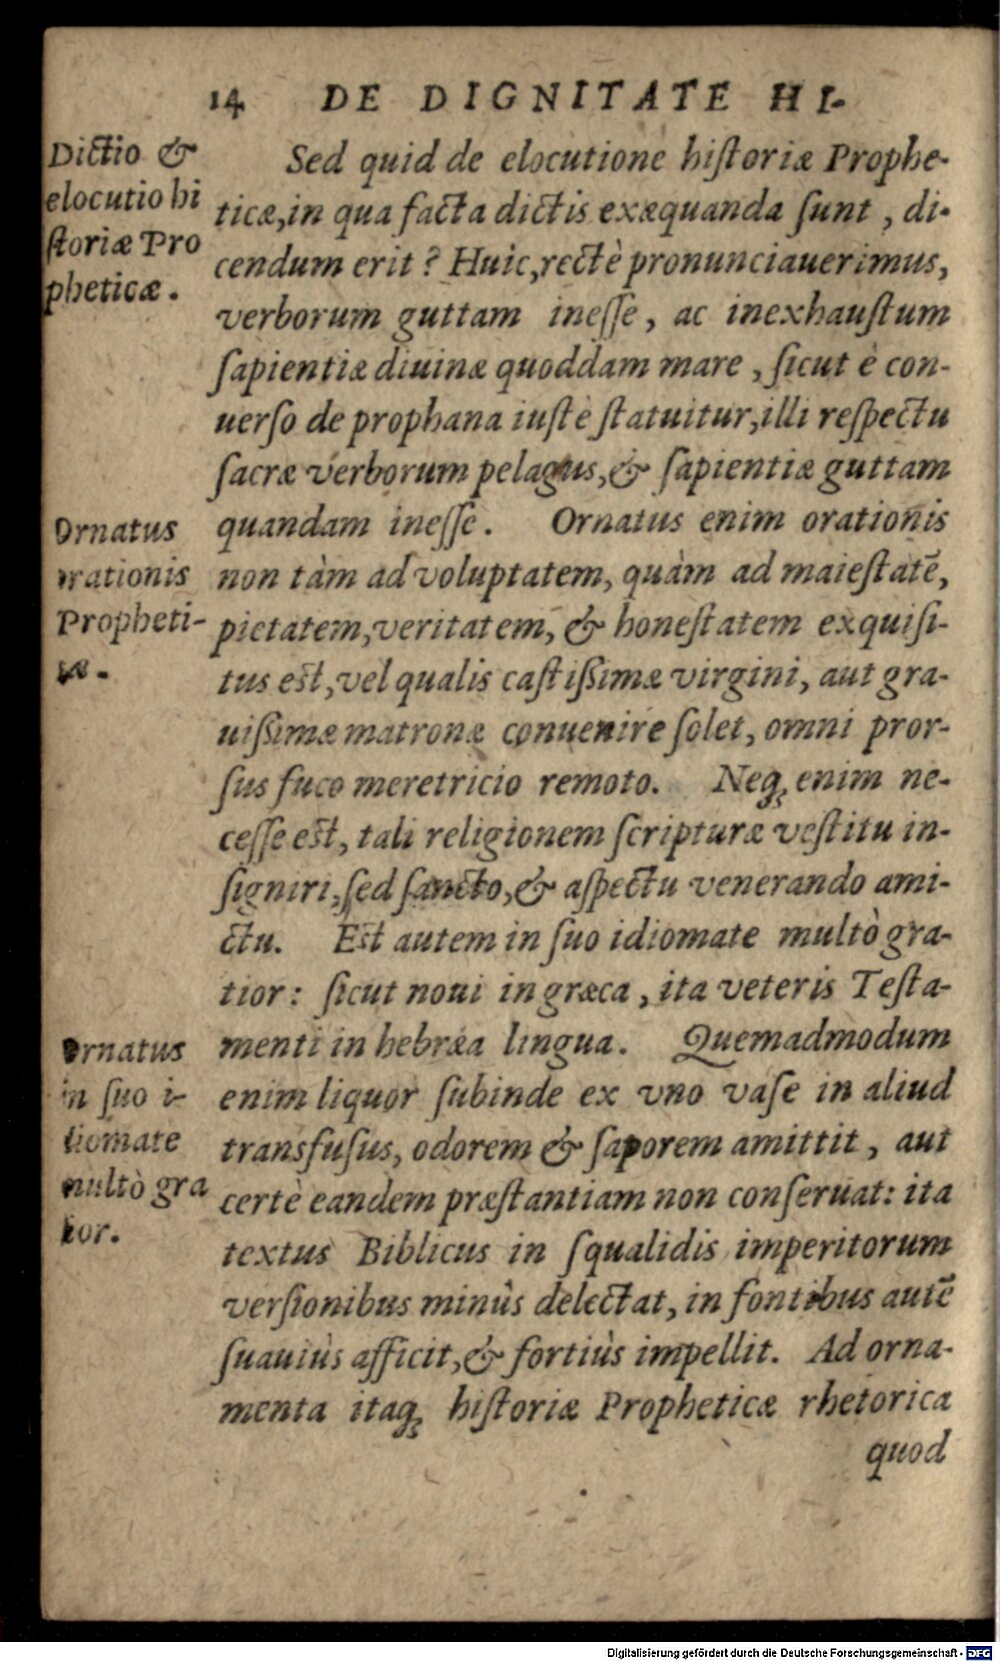 14 DE DIGNITATE HI-
Dictio &
elocutio hi
ſtoriæ Pro
pheticæ.
Sed quid de elocutione hiſtoriæ Prophe-
ticæ, in qua facta dictis exæquanda ſunt, di-
cendum erit? Huic, rectè pronunciauerimus,
verborum guttam ineſſe, ac inexhauſtum
ſapientiæ diuinæ quoddam mare, ſicut è con-
uerſo de prophana iuſtè ſtatuitur, illi reſpectu
ſacræ verborum pelagus, & ſapientiæ guttam
quandam ineſſe. Ornatus enim orationis
non tàm ad voluptatem, quàm ad maieſtatē,
pietatem, veritatem, & honeſtatem exquiſi-
tus eſt, vel qualis caſtißimæ virgini, aut gra-
uißimæ matronæ conuenire ſolet, omni pror-
ſus fuco meretricio remoto. Neq; enim ne-
ceſſe eſt, tali religionem ſcripturæ veſtitu in-
ſigniri, ſed ſancto, & aſpectu venerando ami-
ctu. Eſt autem in ſuo idiomate multò gra-
tior: ſicut noui in græca, ita veteris Teſta-
menti in hebræa lingua. Quemadmodum
enim liquor ſubinde ex vno vaſe in aliud
transfuſus, odorem & ſaporem amittit, aut
certè eandem præſtantiam non conſeruat: ita
textus Biblicus in ſqualidis imperitorum
verſionibus minùs delectat, in fontibus autē
ſuauiùs afficit, & fortiùs impellit. Ad orna-
menta itaq; hiſtoriæ Propheticæ rhetorica
quod
Ornatus
orationis
Propheti-
cæ.
Ornatus
in ſuo i-
diomate
multò gra
tior.
Digitalisierung gefördert durch die Deutsche Forschungsgemeinschaft - DFG